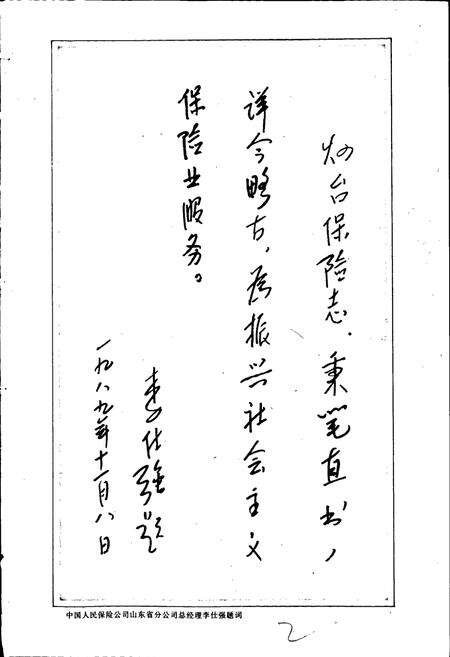 烟台保险志，秉笔直书，
详今略古，为振兴社会主义
保险业服务。
李仕强题
一九八九年十一月八日
中国人民保险公司山东省分公司总经理李仕强题词
2